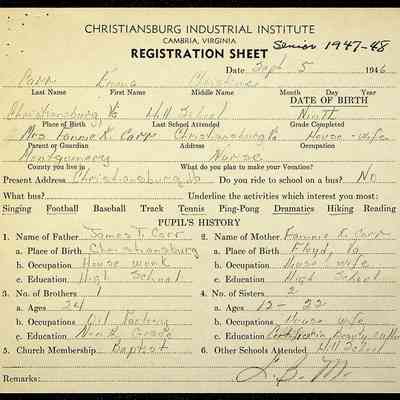 CHRISTIANSBURG INDUSTRIAL INSTITUTE
CAMBRIA, VIRGINIA
REGISTRATION SHEET Senior 1947-48
Date Sept 5 1946
Carr Emma Christine
Last Name First Name Middle Name Month Day Year
DATE OF BIRTH
Christiansburg, Va Hill School Ninth
Place of Birth Last School Attended Grade Completed
Mrs Fannie K. Carr Christiansburg Va House-wife
Parent or Guardian Address Occupation
Montgomery Nurse
County you live in What do you plan to make your Vocation?
Present Address Christiansburg Va Do you ride to school on a bus? No
What bus? Underline the activities which interest you most:
Singing Football Baseball Track Tennis Ping-Pong Dramatics Hiking Reading
PUPIL'S HISTORY
1. Name of Father James T. Carr 2. Name of Mother Fannie K. Carr
a. Place of Birth Christiansburg a. Place of Birth Floyd, Va
b. Occupation House work b. Occupation House wife
c. Education High School c. Education High School
3. No. of Brothers 1 4. No. of Sisters 2
a. Ages 24 a. Ages 12 - 22
b. Occupations Oil b. Occupations House wife
c. Education Grade c. Education Beauty
5. Church Membership Baptist 6. Other Schools Attended Hill School
Remarks: